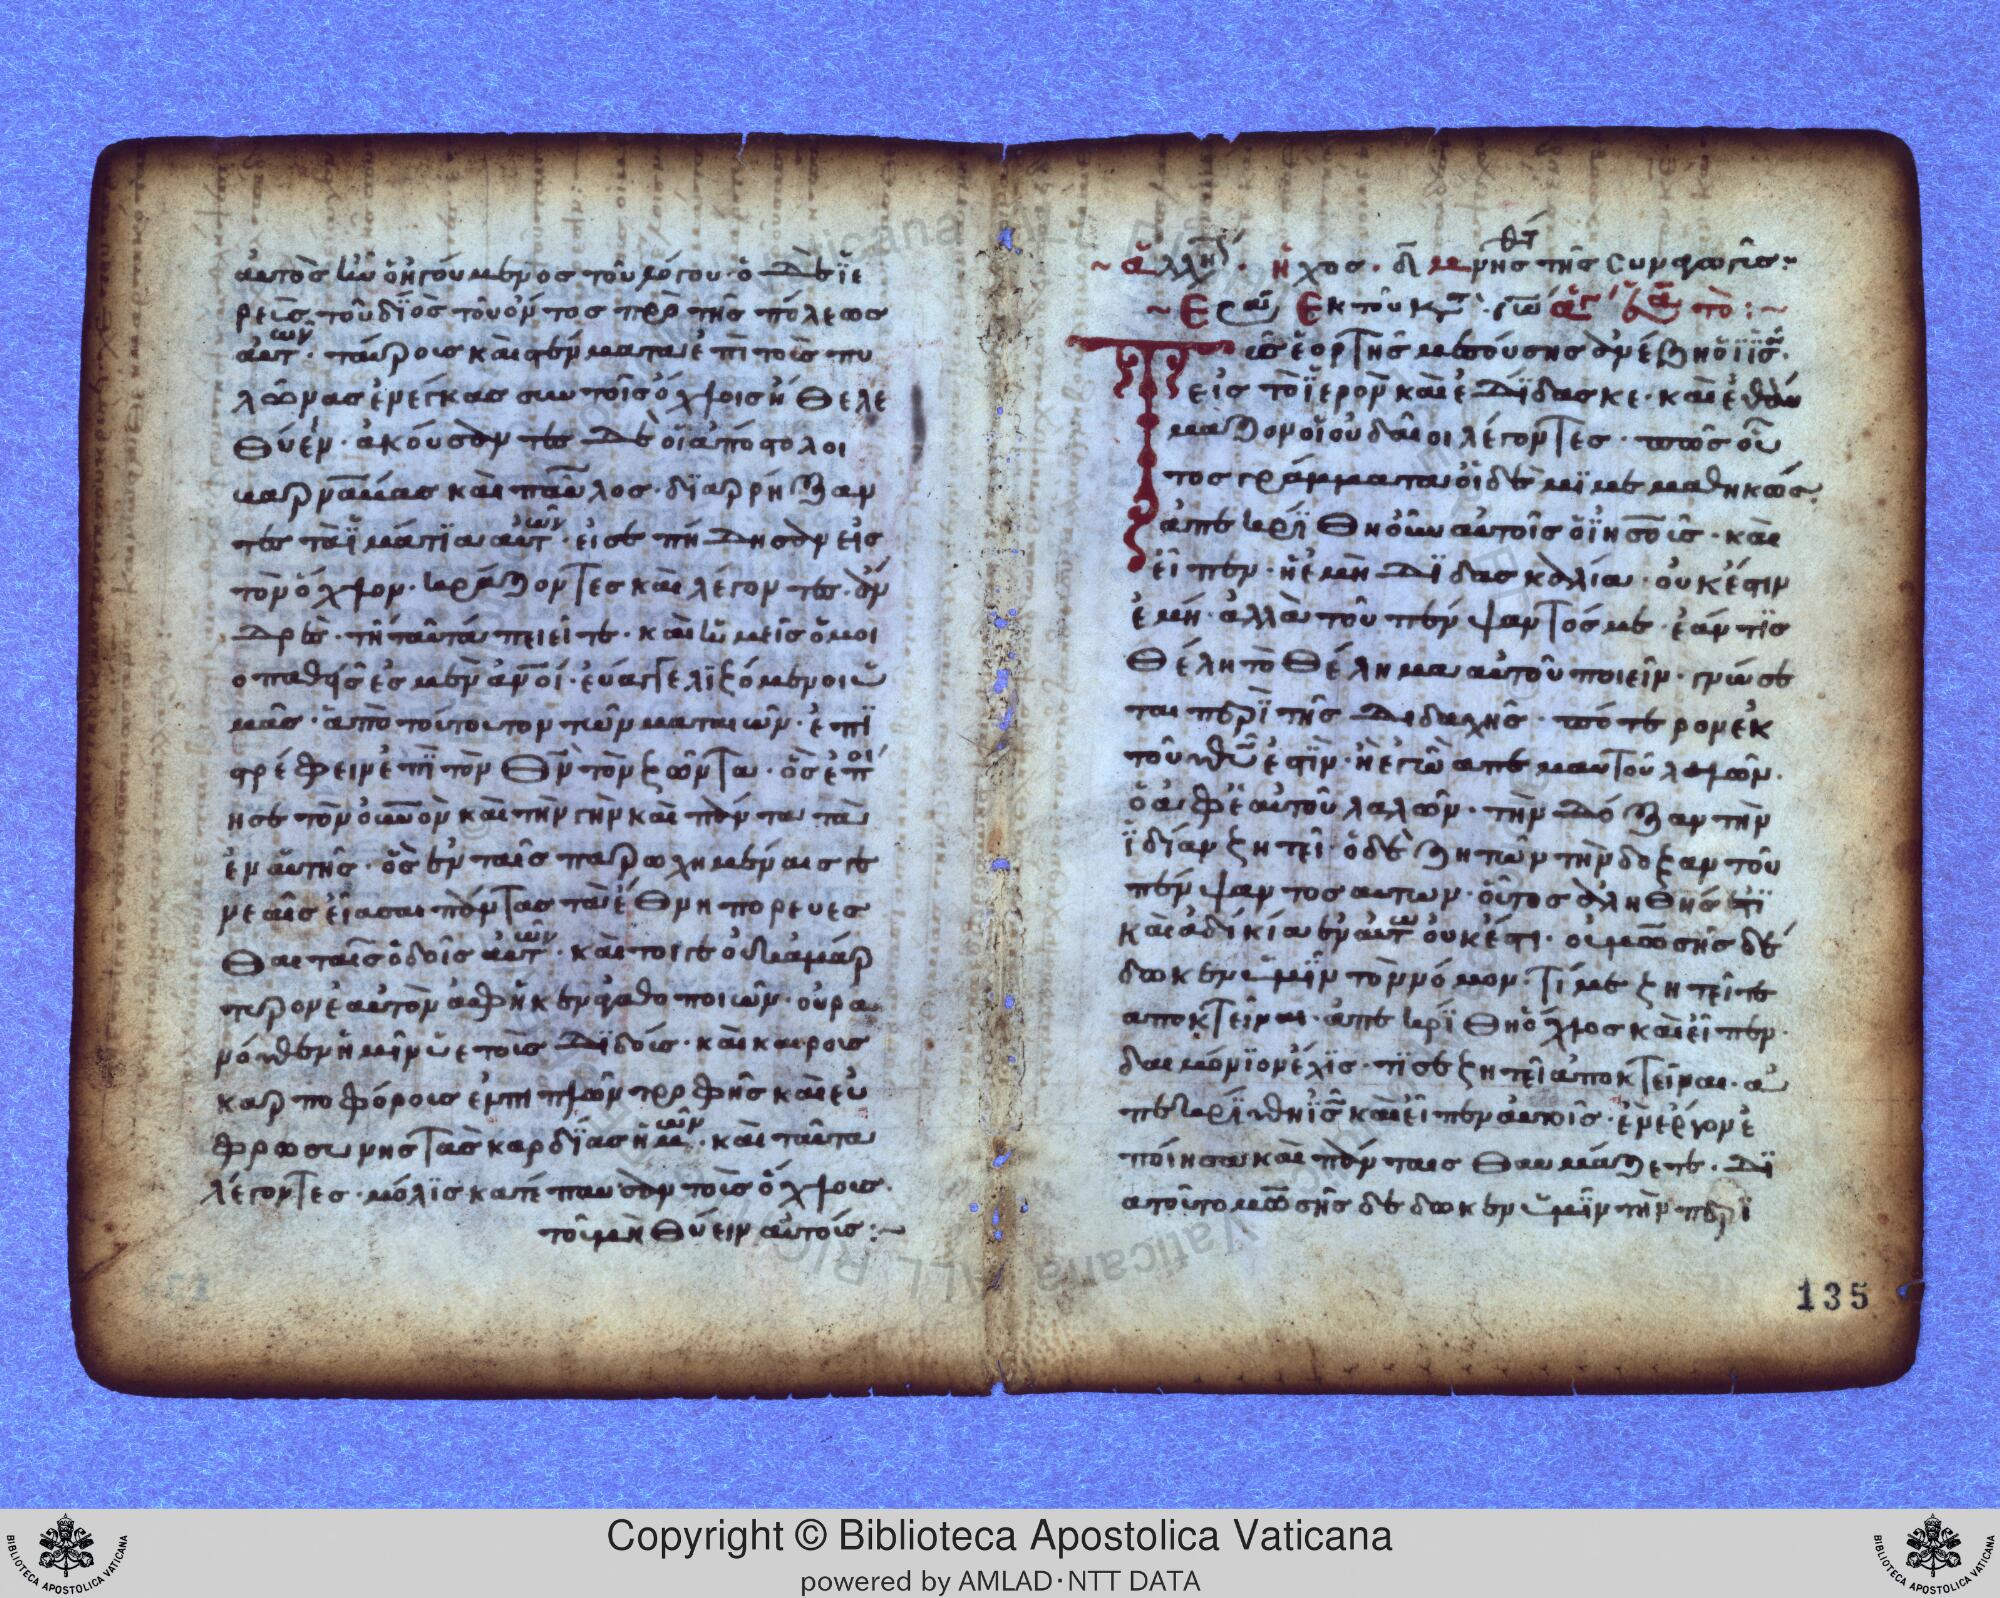 αὐτὸς ἦν ὁ ἡγούμενος τοῦ λόγου· ὁ δὲ ἱε
ρεὺς τοῦ διὸς τοῦ ὄντος πρὸ τῆς πόλεως
αὐτῶν· ταύροις καὶ στέμματα ἐπὶ τοῖς πυ
λῶνας ἐνέγκας σὺν τοῖς ὄχλοις ἤθελε
θύειν· ἀκούσαντες δὲ οἱ ἀπόστολοι
βαρνάβας καὶ παῦλος· διαρρήξαν
τες τὰ ἱμάτια αὐτῶν· εἰσεπήδησαν εἰς
τὸν ὄχλον· κράζοντες καὶ λέγοντες· ἄν
δρες· τί ταῦτα ποιεῖτε· καὶ ὑμεῖς ὅμοι
οπαθεῖς ἐσμεν ἀνοί· εὐαγγελιζόμενοι ὑ
μᾶς· ἀπὸ τούτοι τον τῶν ματαιῶν· ἐπι
στρέφειν ἐπὶ τὸν θν τὸν ζῶντα· ὃς ἐποί
ησε τὸν οὐνὸν καὶ τὴν γὴν καὶ πάντα τὰ
ἐν αὐτῆς· ὃς ἐν ταῖς παρωχημέναις γε
νεαῖς εἴασαι πάντας τὰ ἔθνη πορεύεσ
θαι ταῖς ὁδοῖς αὐτῶν· καὶ τοιγε οὐκ ἀμάρ
τυρον ἑαυτὸν ἀφῆκεν ἀγαθοποιῶν· οὐρα
νόθεν ἡμῖν ὑετοῖς διδούς· καὶ καιροις
καρποφόροις ἐμπιπλῶν τροφῆς καὶ εὐ
φροσύνης τὰς καρδίας ἡμῶν· καὶ ταῦτα
λέγοντες· μόλις κατέπαυσαν τοῖς ὄχλοις·
τοῦ μὴ θύειν αὐτοῖς :~
~ ἀλλη· ἦχος· δ
τὸ :~
ῆς ἑορτῆς μεσούσης ἀνέβη ὁ ις·
εἰς τὸ ἱερὸν καὶ ἐδίδασκε· καὶ ἐθαύ
μαζον οἱ οὐδαιοι λέγοντες· πῶς οὗ
τος γράμματα οἶδε μὶ μεμαθηκώς·
ἀπεκρίθη οὖν αὐτοῖς ὁ ἰησοῦς· καὶ
εἶπεν· ἡ ἐμὴ διδασκαλία· οὐκ ἔστιν
ἐμή· ἀλλὰ τοῦ πέμψαντός με· ἐάν τις
θέλη τὸ θέλημα αὐτοῦ ποιεῖν· γνώσε
ται περὶ τῆς διδαχῆς· πότερον ἐκ
τοῦ θῦ ἐστὶν· ἢ ἐγὼ ἀπεμαυτοῦ λαλῶν·
ὁ ἀφ ἑαυτοῦ λαλῶν· τὴν δόξαν τὴν
ἰδίαν ζητεῖ· ὁ δὲ ζητῶν τὴν δοξαν τοῦ
πέμψαντος αυτων· οὗτος ἀληθής ἐστὶ
καὶ ἀδικία ἐν αὐτῶ οὐκ ἔστι· οὐ μωσῆς δέ
δωκεν ὑμῖν τὸν νόμον· τί με ζητεῖτε
αποκτεῖναι· ἀπεκρίθη ὁ ὄχλος καὶ εἶπεν·
δαιμόνιον ἔχις· τίς σε ζητεῖ ἀποκτεῖναι· ἀ
πεκρίθη ις καὶ εἶπεν αὐτοῖς· ἓν ἔργον ἐ
ποίησα καὶ πάνταις θαυμάζετε· δι
α τοῦτο μωσῆς δέδωκεν ὑμῖν τὴν περὶ
135
Copyright © Biblioteca Apostolica Vaticana
powered by AMLAD·NTT DATA
BIBLIOTECA APOSTOLICA VATICANA
BIBLIOTECA APOSTOLICA VATICANA